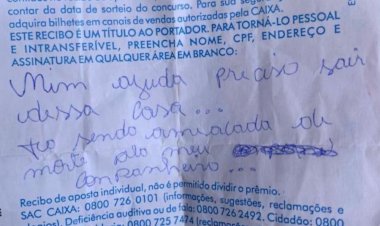 contar da data de sorteio do concurso. Para sua segu
adquira bilhetes em canais de vendas autorizadas pela CAIXA.
ESTE RECIBO É UM TÍTULO AO PORTADOR. PARA TORNÁ-LO PESSOAL
E INTRANSFERÍVEL, PREENCHA NOME, CPF, ENDEREÇO E
ASSINATURA EM QUALQUER ÁREA EM BRANCO:
Mim ajuda preciso sair
dessa casa...
to sendo amiacada de
morte pelo meu
companheiro...
Recibo de aposta individual, não é permitido dividir o prêmio.
SAC CAIXA: 0800 726 0101 (informações, sugestões, reclamações e
elogios). Deficiência auditiva ou de fala: 0800 726 2492. Cidadão: 0800
0800 725 7474 (reclamações